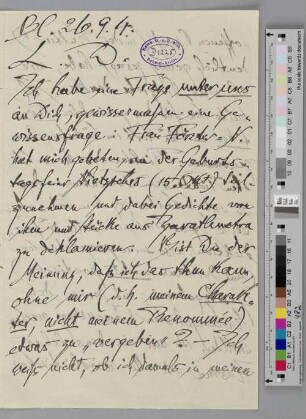 Bl. 26.9.4.
L. R.
Ich habe eine Frage unter uns
an Dich, gewissermaßen eine Ge-
wissensfrage: Frau Förster-N.
hat mich gebeten, an der Geburts-
tagsfeier Nietzsches (15. Okt.) teil
zunehmen und dabei Gedichte von
ihm und Stücke aus Zarathustra
zu deklamieren. Bist Du der
Meinung, daß ich das thun kann
ohne mir (d.h. meinem Charak-
ter nicht meinem Renommée)
etwas zu vergeben? Ich
weiß nicht, ob ich damals in meinen